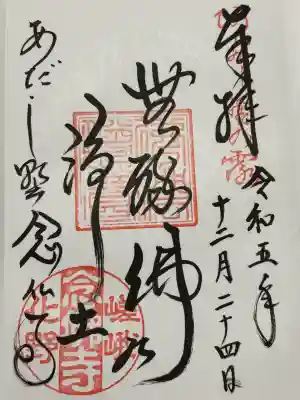 奉拝
令和五年
十二月二十四日
無縁佛
浄土
あだし野念仏寺
嵯峨
念仏寺
化野